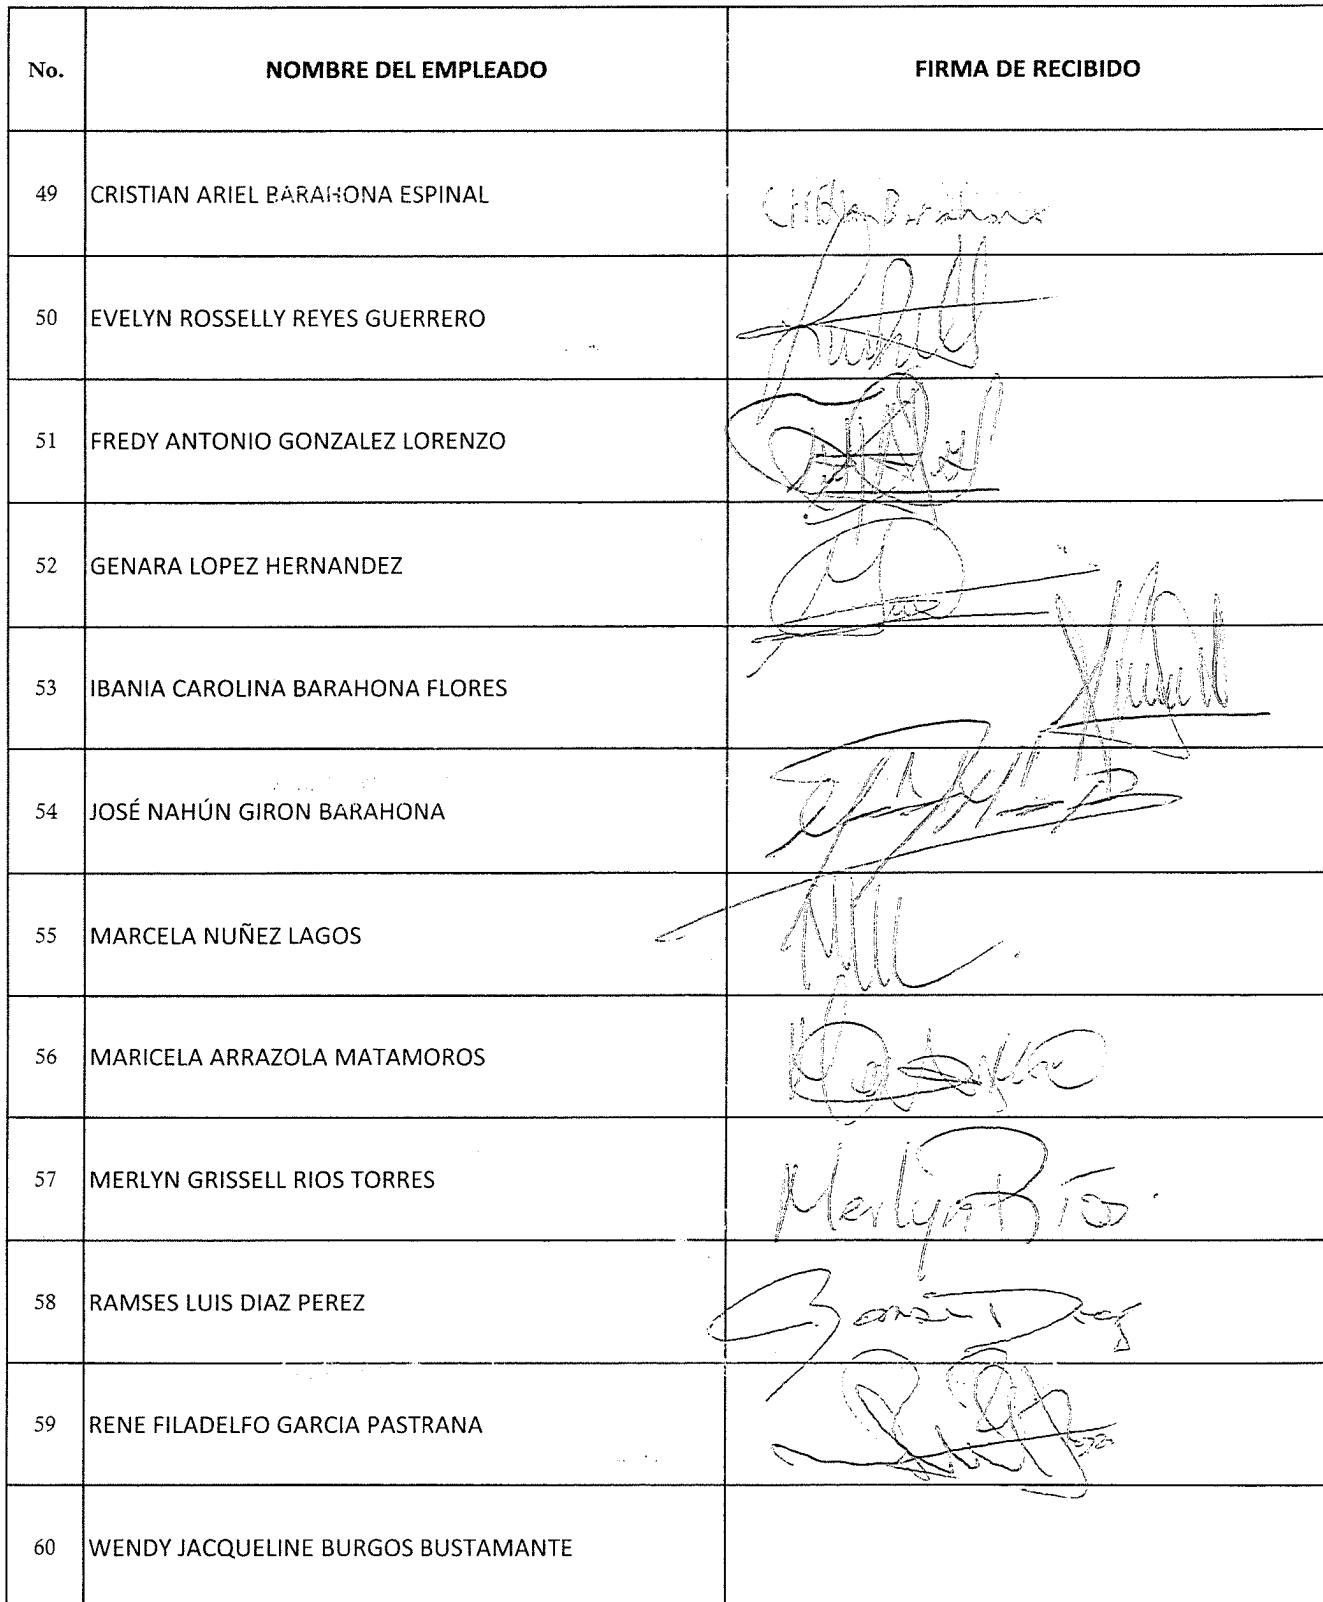 No. NOMBRE DEL EMPLEADO FIRMA DE RECIBIDO
49 CRISTIAN ARIEL BARAHONA ESPINAL Barahona
50 EVELYN ROSSELLY REYES GUERRERO
51 FREDY ANTONIO GONZALEZ LORENZO
52 GENARA LOPEZ HERNANDEZ
53 IBANIA CAROLINA BARAHONA FLORES
54 JOSÉ NAHÚN GIRON BARAHONA
55 MARCELA NUÑEZ LAGOS
56 MARICELA ARRAZOLA MATAMOROS
57 MERLYN GRISSELL RIOS TORRES Merlyn Rios
58 RAMSES LUIS DIAZ PEREZ Diaz
59 RENE FILADELFO GARCIA PASTRANA
60 WENDY JACQUELINE BURGOS BUSTAMANTE